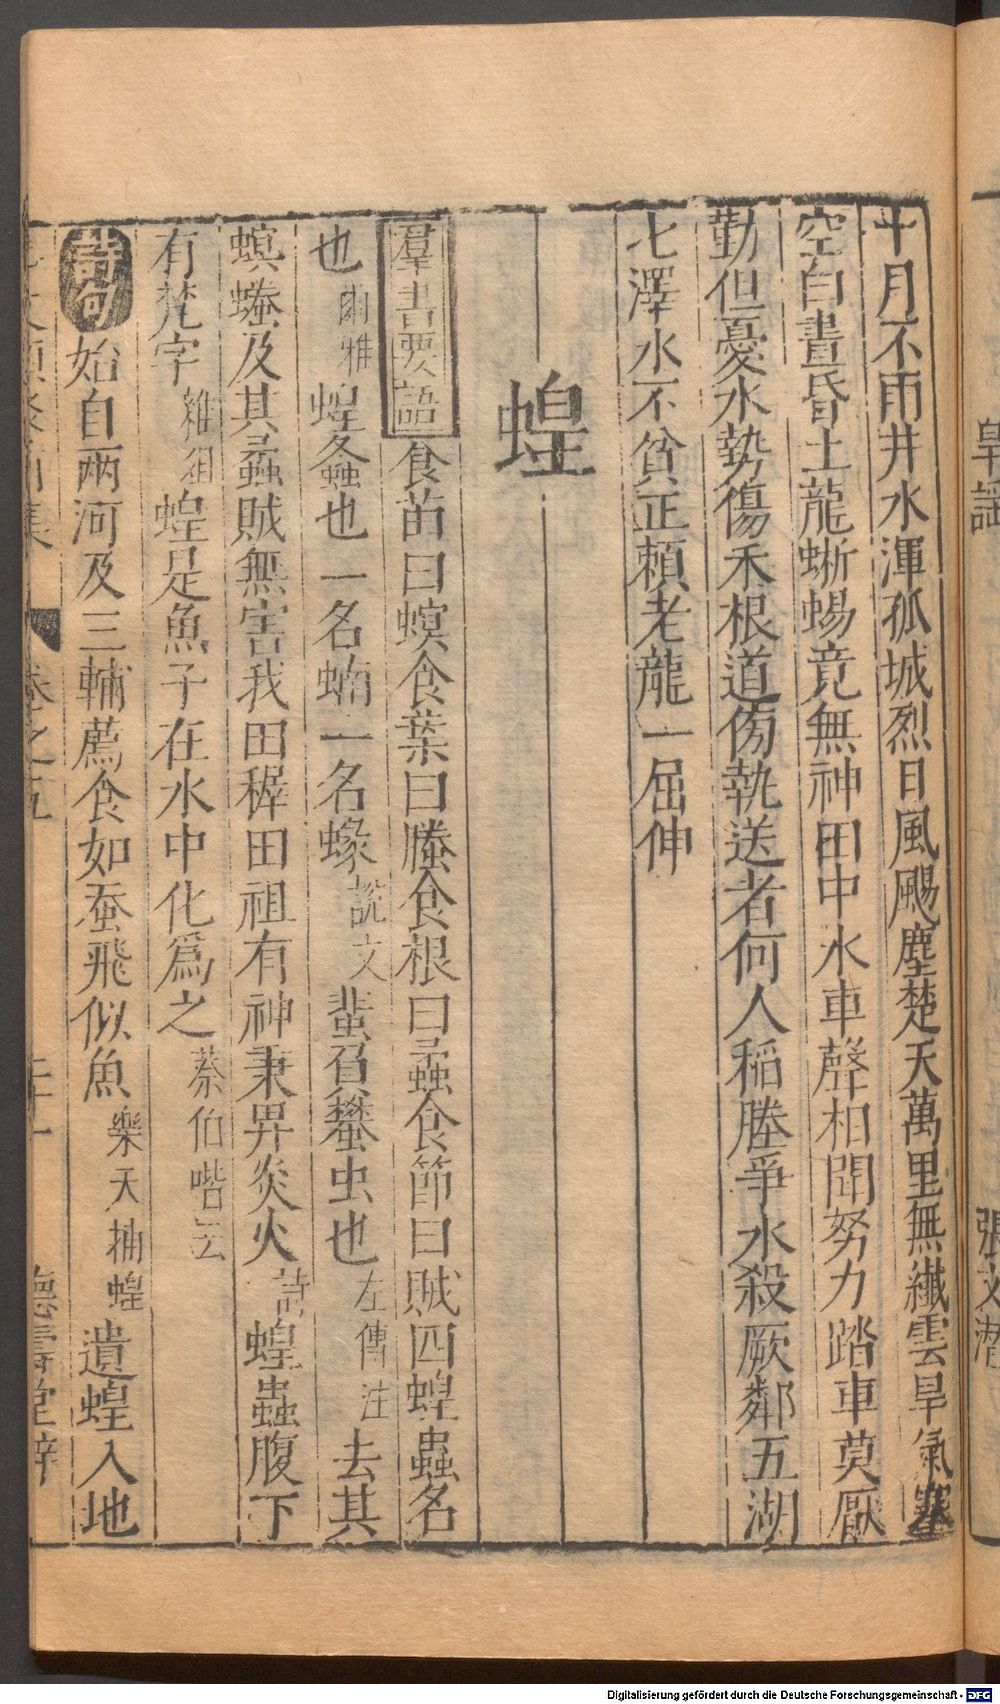 旱謡
張文潛
十月不雨井水渾孤城烈日風颺塵楚天萬里無纎雲旱氣塞
空白晝昏土龍蜥蜴竟無神田中水車聲相聞努力踏車莫厭
勤但憂水勢傷禾根道傍執送者何人稲塍爭水殺厥鄰五湖
七澤水不貧正頼老龍一屈伸
蝗
羣書要語食苗曰螟食葉曰螣食根曰蟊食節曰賊四蝗蟲名
也爾雅蝗螽也一名蝻一名蝝說文蜚負蠜虫也左傳注去其
螟螣及其蟊賊無害我田穉田祖有神秉畀炎火詩蝗蟲腹下
有梵字雜俎蝗是魚子在水中化爲之蔡伯喈云
詩句始自兩河及三輔薦食如蚕飛似魚樂天捕蝗遺蝗入地
卷之五
德壽堂梓
Digitalisierung gefördert durch die Deutsche Forschungsgemeinschaft - DFG